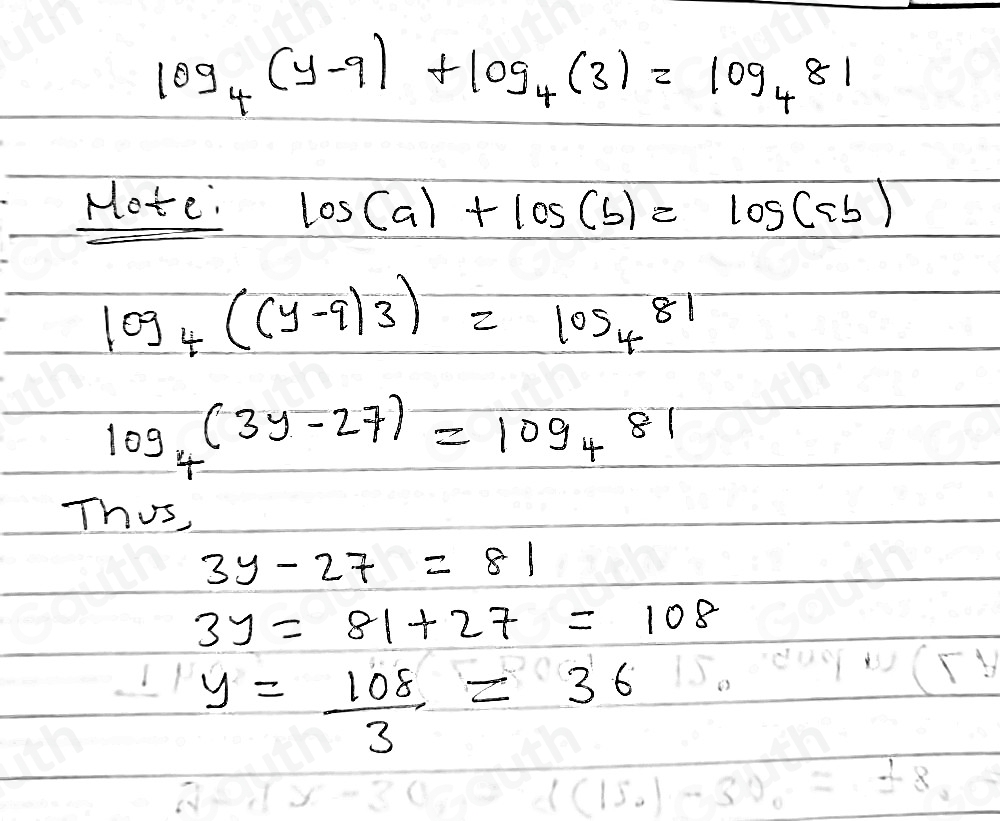 log₄(y-9) + log₄(3) = log₄ 81
Note: log(a) + log(b) = log(ab)
log₄((y-9)3) = log₄ 81
log₄(3y-27) = log₄ 81
Thus,
3y - 27 = 81
3y = 81 + 27 = 108
y = 108/3 = 36